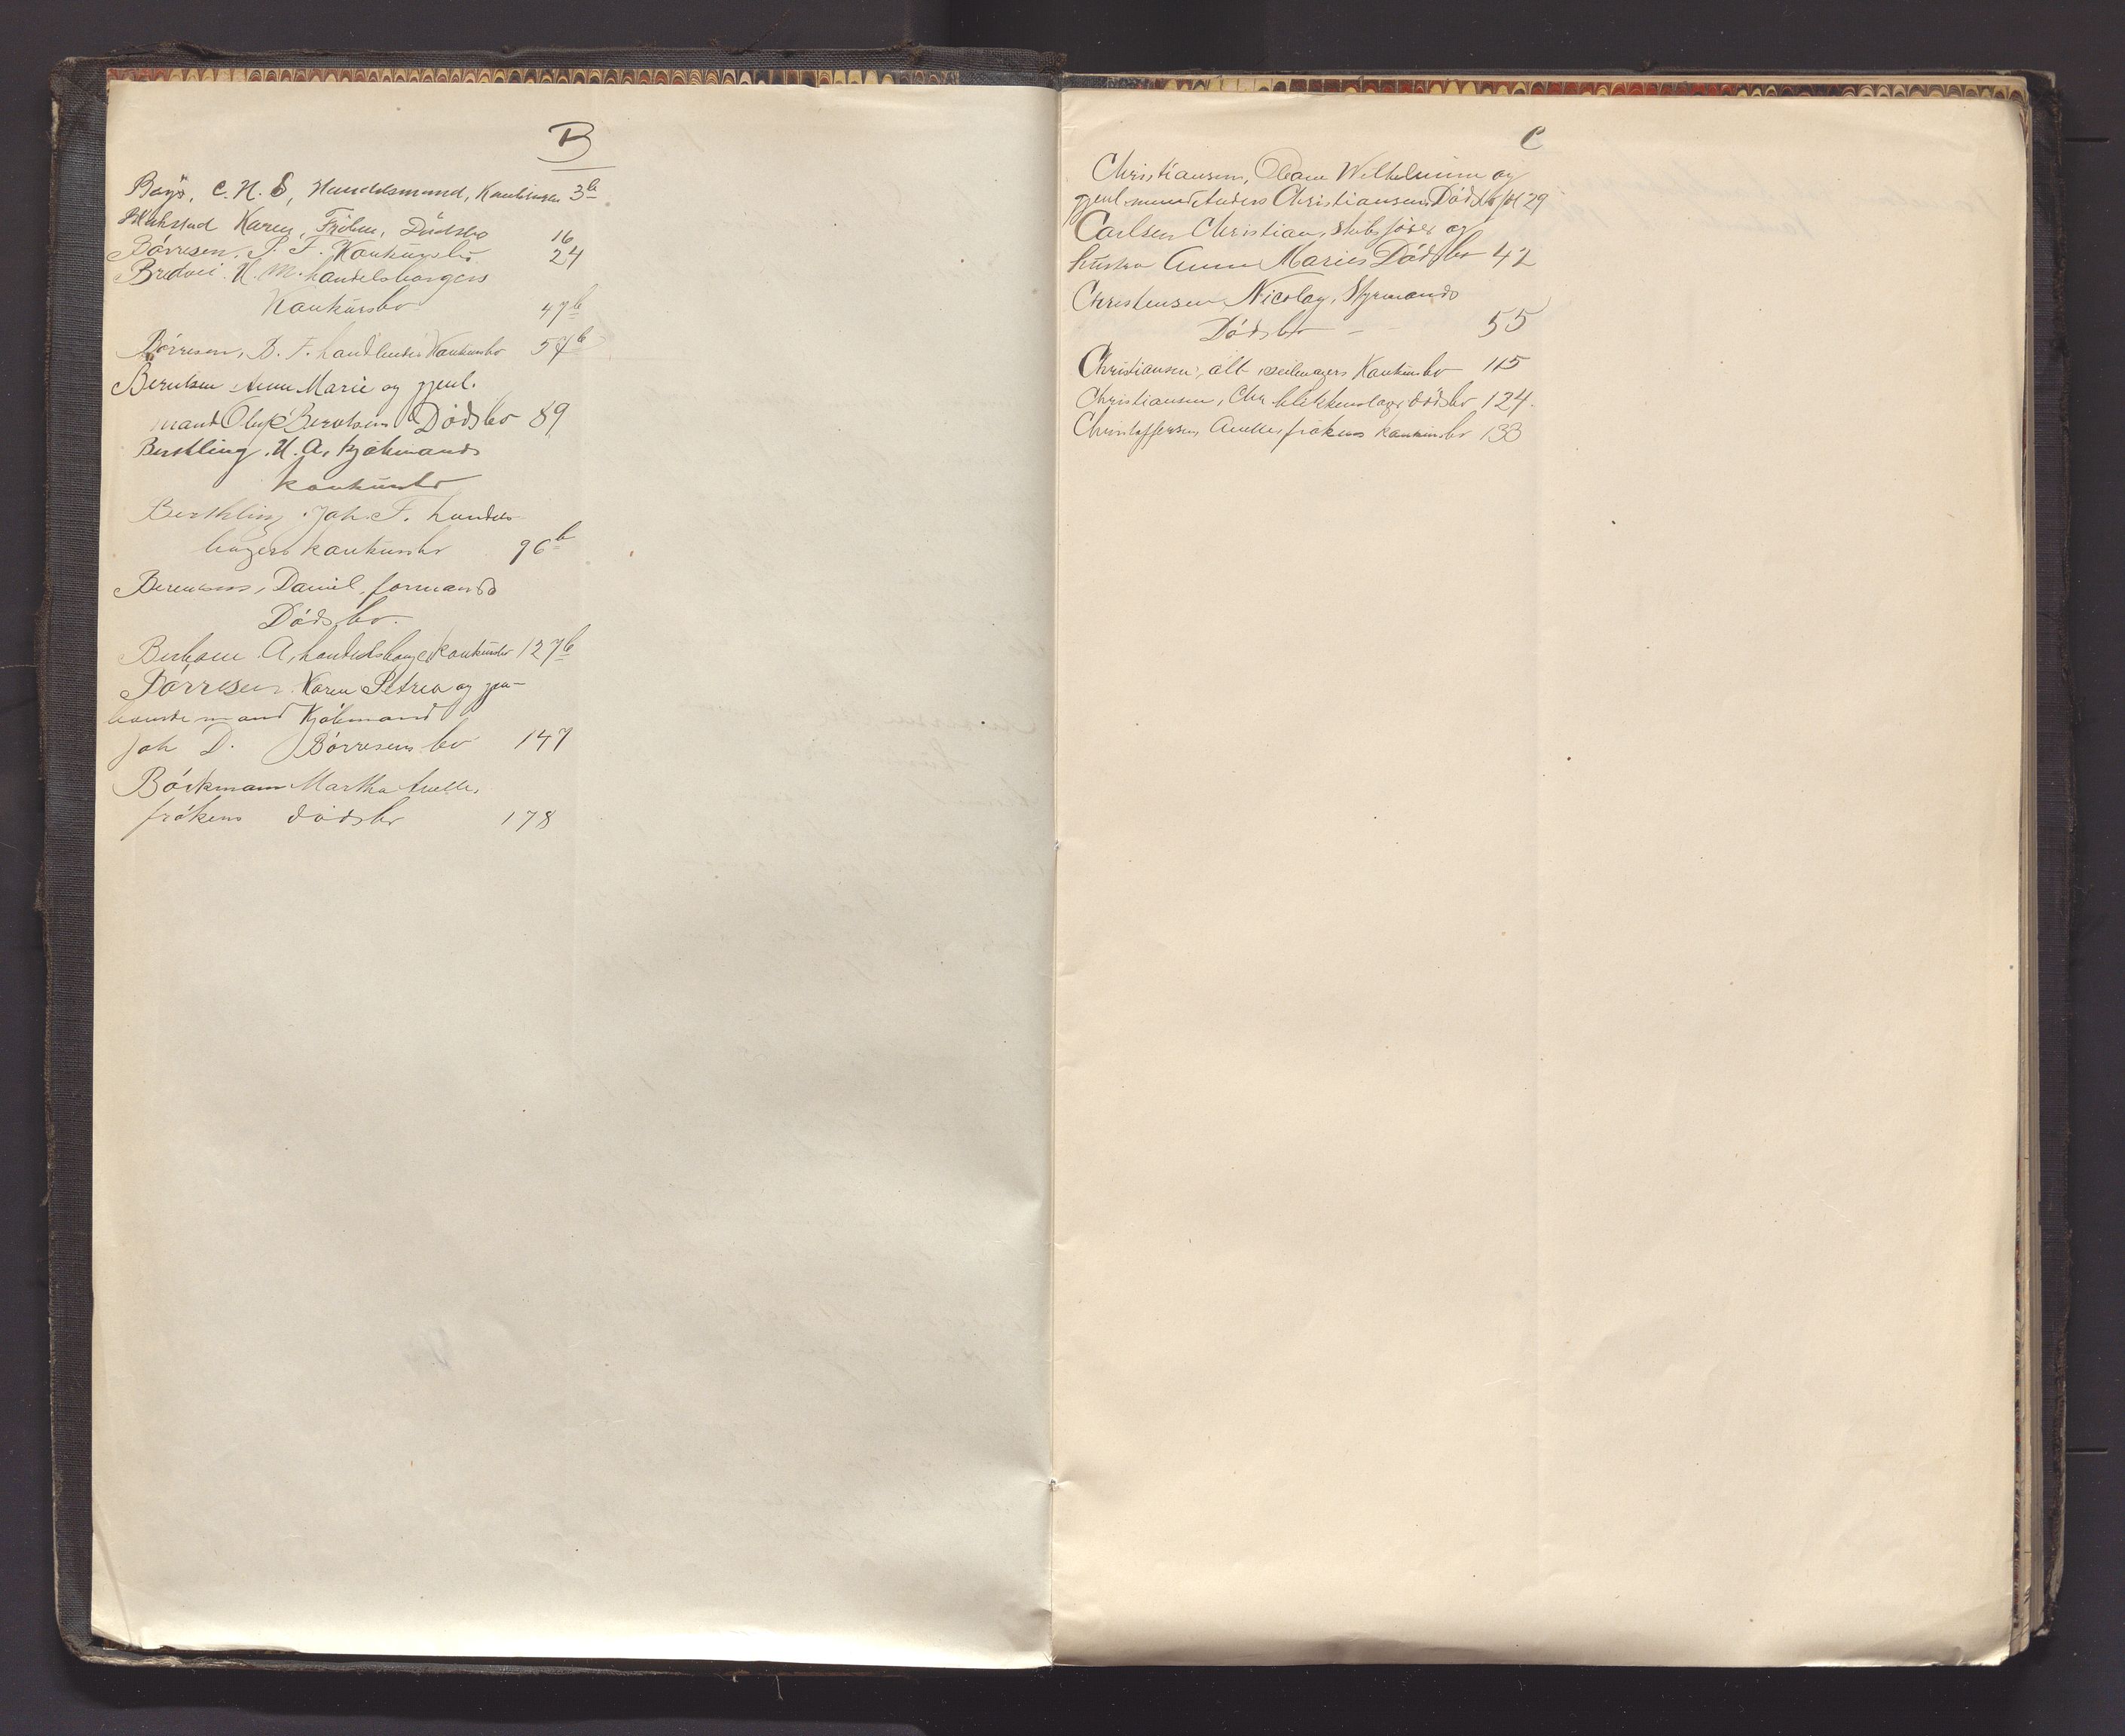 B
Boys, C. H. S, Handelsmand, Konkursbo 3b
Karen, Frøken, Dødsbo 16
Börresen, P. F. Konkursbo 24
Bredvei H. M. handelsborgers
Konkursbo 47b
Börresen, B. F. handlende Konkursbo 54b
Berntsen Anne Marie og gjenl.
mand Oluf Berntsens Dødsbo 89
Berthling, H. A. kjøbmands
konkursbo
Berthling Joh. F. handels
borgers konkursbo 96b
Daniel, formands
Dødsbo.
A, handelsborger konkursbo 127b
Börresen Karen Petrea og gjen-
levende mand Kjøbmand
Joh D. Börresens bo 147
Böckmann Martha Amelie,
frøkens dødsbo 178
C
Christiansen, Wilhelmine og
gjenl. mand Anders Christiansens Dødsbo fol 29
Carlsen Christian, skibsfører og
hustru Anne Maries Dødsbo 42
Christensen Nicolay, Styrmands
Dødsbo - - 55
Christiansen, Alb seilmagers Konkursbo 115
Christiansen, Chr blikkenslager dødsbo 124.
Christoffersen, Amelie, frøkens konkursbo 133